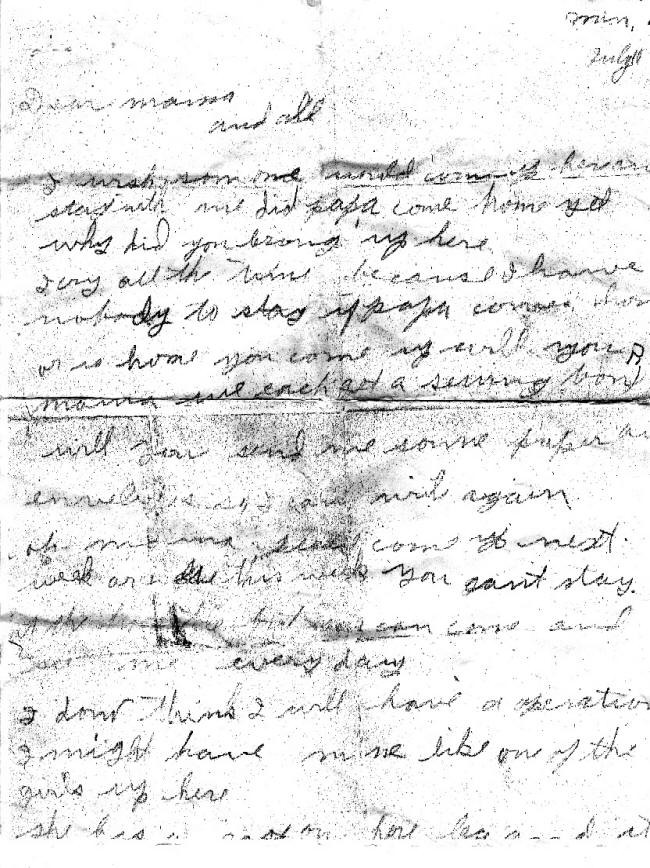 Minn.
July
Dear mama
and all
I wish som one would come up here an
stay with me did papa come home yet
why did you brong up here
I cry all the time because I have
nobody to stay if papa comes hom
or is home you come up will you
mama we each got a sewing
will you send me some paper an
envelopes so I can writ again
oh mama come up next
week or this week you cant stay
at the but you can come and
see me every day
I dont think I will have a operation
I might have mine like one of the
girls up here
she has a on